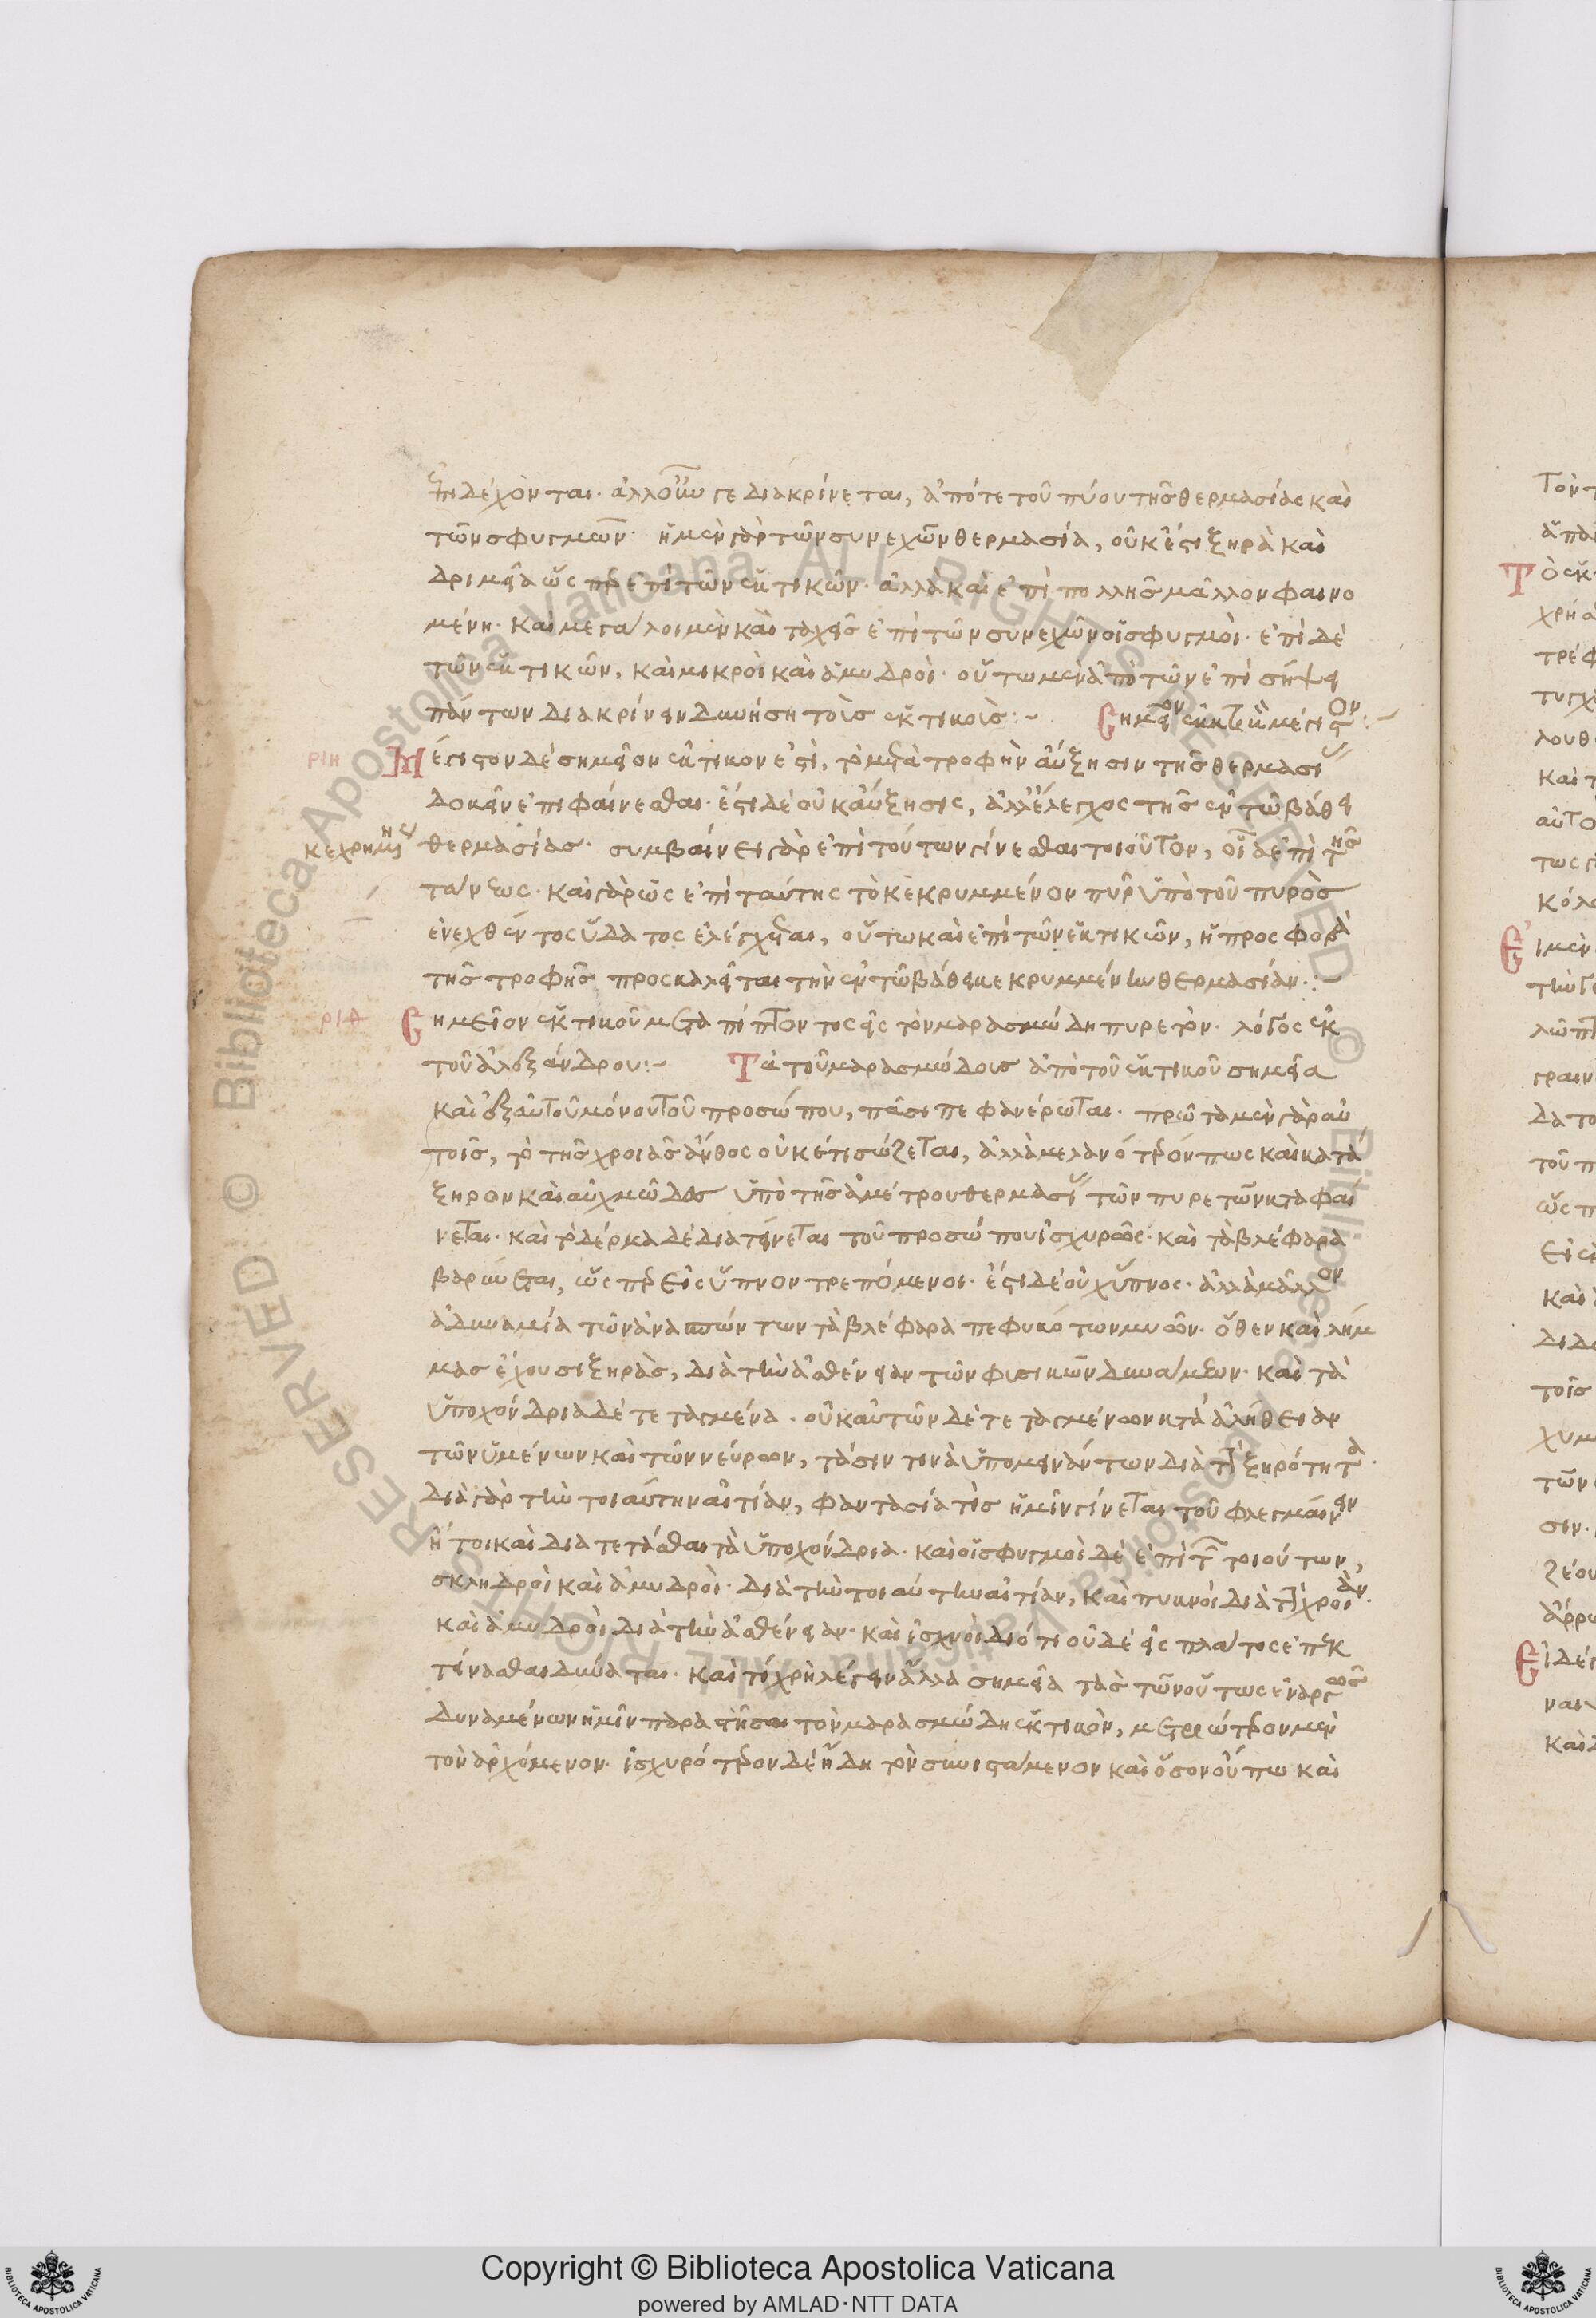 ἐπιδέχονται· ἀλλ' οὖν γε διακρίνεται, ἀπό τε τοῦ πύου τῆς θερμασίας καὶ
τῶν σφυγμῶν· ἡ μὲν γὰρ τῶν συνεχῶν θερμασία, οὐκ ἔστι ξηρὰ καὶ
δριμεῖα ὥσπερ ἐπὶ τῶν ἑκτικῶν· ἀλλὰ καὶ ἐπὶ πολλῆς μᾶλλον φαινο
μένη· καὶ μεγάλοι μὲν καὶ ταχεῖς ἐπὶ τῶν συνεχῶν οἱ σφυγμοὶ· ἐπὶ δὲ
τῶν ἑκτικῶν, καὶ μικροὶ καὶ ἀμυδροὶ· οὕτω μὲν ἀπὸ τῶν ἐπὶ σήψει
πάντων διακρίνειν δυνήσῃ τοὺς ἑκτικοὺς :~ Σημεῖον ἑκτικοῦ μέγιστον :~
ριη Μέγιστον δὲ σημεῖον ἑκτικόν ἐστὶ, τὸ μετὰ τροφὴν αὔξησιν τῆς θερμασίας
δοκεῖν ἐπιφαίνεσθαι· ἔστι δὲ οὐκ αὔξησις, ἀλλ' ἔλεγχος τῆς ἐν τῷ βάθει
κεχρημένης θερμασίας· συμβαίνει γὰρ ἐπὶ τούτων γίνεσθαι τοιοῦτον, οἷα ἐπὶ τῆς
τιτάνεως· καὶ γὰρ ὡς ἐπὶ ταύτης τὸ κεκρυμμένον πῦρ ὑπὸ τοῦ πυρὸς
ἐνεχθέντος ὕδατος ἐλέγχεται, οὕτω καὶ ἐπὶ τῶν ἑκτικῶν, ἡ προσφορὰ
τῆς τροφῆς προσκαλεῖται τὴν ἐν τῷ βάθει κεκρυμμένην θερμασίαν :~
ριθ Σημεῖον ἑκτικοῦ μεταπίπτοντος εἰς τὸν μαρασμώδη πυρετόν· λόγος ἐκ
τοῦ ἀλεξάνδρου :~ Τὰ τοῦ μαρασμώδους ἀπὸ τοῦ ἑκτικοῦ σημεῖα
καὶ ἐξ αὐτοῦ μόνου τοῦ προσώπου, πᾶσι πεφανέρωται· πρῶτα μὲν γὰρ αὐ
τοῖς, τὸ τῆς χροιᾶς ἄνθος οὐκέτι σώζεται, ἀλλὰ μελανότερόν πως καὶ κατὰ
ξηρον καὶ αὐχμῶδες ὑπὸ τῆς ἀμέτρου θερμασίας τῶν πυρετῶν καταφαί
νεται· καὶ τὸ δέρμα δὲ διατείνεται τοῦ προσώπου ἰσχυρῶς· καὶ τὰ βλέφαρα
βαρύνεται, ὥσπερ εἰς ὕπνον τρεπόμενοι· ἔστι δὲ οὐχ ὕπνος· ἀλλὰ μᾶλλον
ἀδυναμία τῶν ἀνασπώντων τὰ βλέφαρα πεφυκότων μυῶν· ὅθεν καὶ λήμ
μας ἔχουσι ξηρὰς, διὰ τὴν ἀσθένειαν τῶν φυσικῶν δυνάμεων· καὶ τὰ
ὑποχόνδρια δὲ τεταγμένα· οὐκ αὐτῶν δὲ τεταγμένων κατὰ ἀλήθειαν
τῶν ὑμένων καὶ τῶν νεύρων, τάσιν τινὰ ὑπομεινάντων διὰ τὴν ξηρότητα·
διὰ γὰρ τὴν τοιαύτην αἰτίαν, φαντασία τὶς ἡμῖν γίνεται τοῦ φλεγμαίνειν
ἤτοι καὶ διατετάσθαι τὰ ὑποχόνδρια· καὶ οἱ σφυγμοὶ δὲ ἐπὶ τῶν τοιούτων,
σκληδροὶ καὶ ἀμυδροὶ· διὰ τὴν τοιαύτην αἰτίαν, καὶ πυκνοὶ διὰ τὴν χροιὰν·
καὶ ἀμυδροὶ διὰ τὴν ἀσθένειαν· καὶ ἰσχνοὶ διότι οὐδὲ εἰς πλάτος ἐπεκ
τείνασθαι δύναται· καὶ τί χρὴ λέγειν ἄλλα σημεῖα τὰς τῶν οὕτως ἐναργῶς
δυναμένων ἡμῖν παραστῆσαι τὸν μαρασμώδη ἑκτικὸν, μετριώτερον μὲν
τὸν ἀρχόμενον· ἰσχυρότερον δὲ ἤδη τὸν συνιστάμενον καὶ ὅσον οὔπω καὶ
Copyright © Biblioteca Apostolica Vaticana
powered by AMLAD·NTT DATA